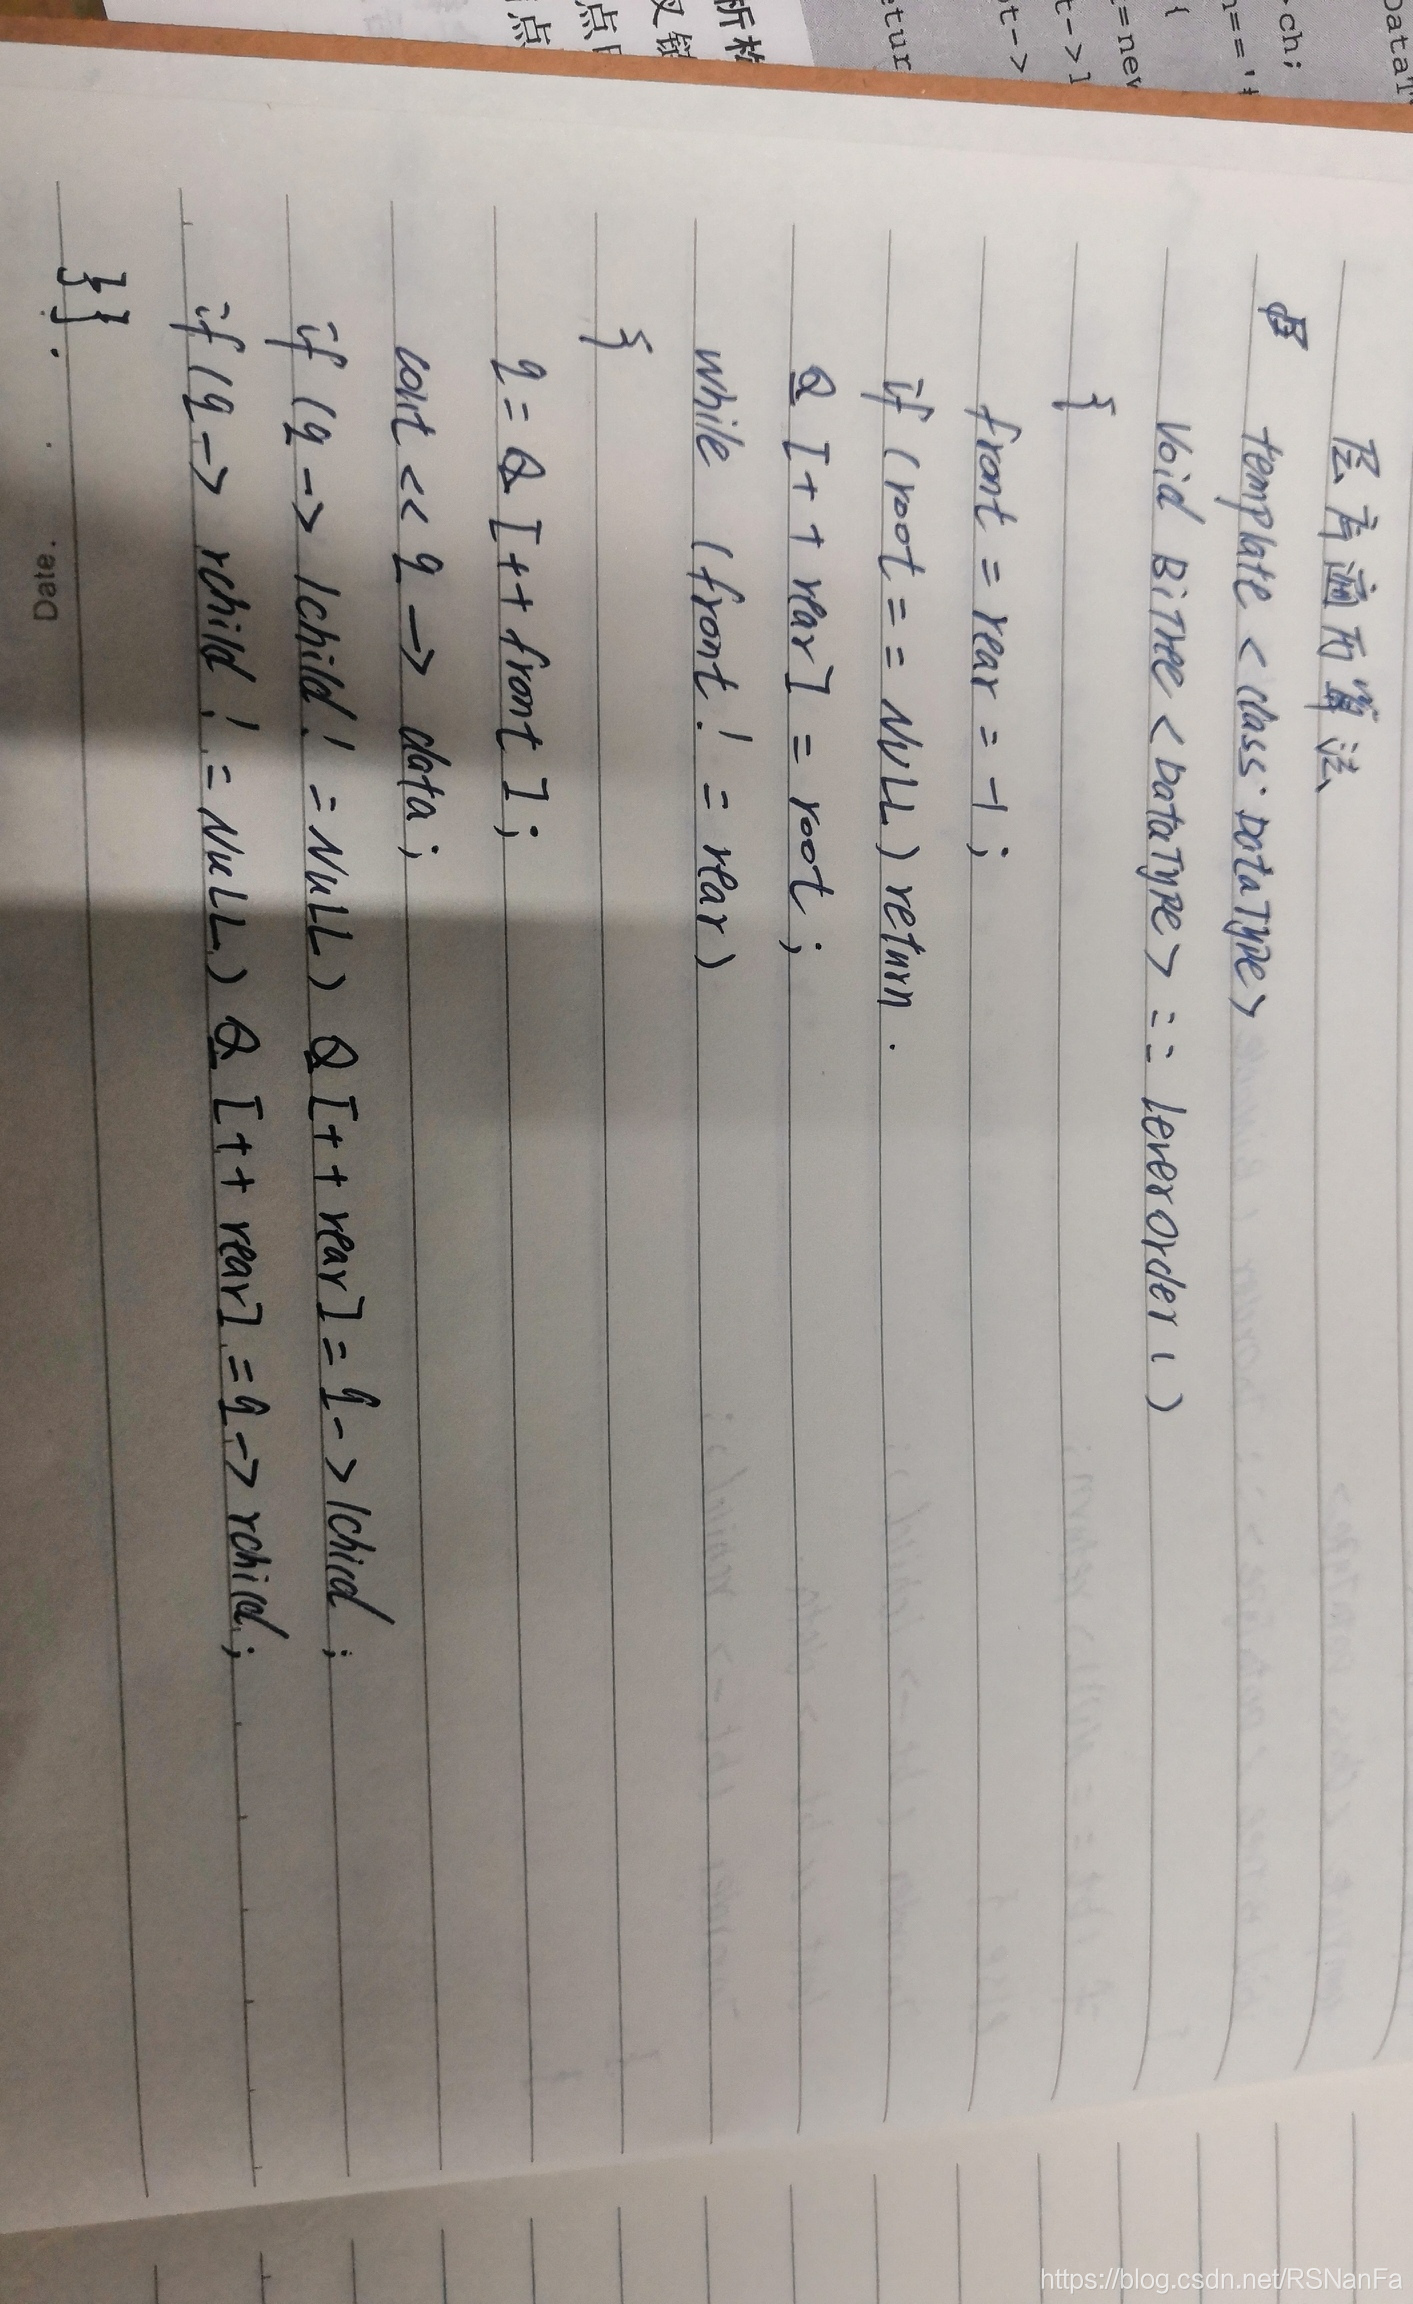 层序遍历算法
template <class DataType>
void BiTree <DataType> :: leverOrder ( )
{
front = rear = -1 ;
if (root == NULL) return .
Q [++ rear] = root ;
while (front != rear)
{
q = Q [++ front] ;
cout << q -> data ;
if (q -> lchild != NULL) Q [++ rear] = q -> lchild ;
if (q -> rchild != NULL) Q [++ rear] = q -> rchild ;
}} .
Date.
https://blog.csdn.net/RSNanFa